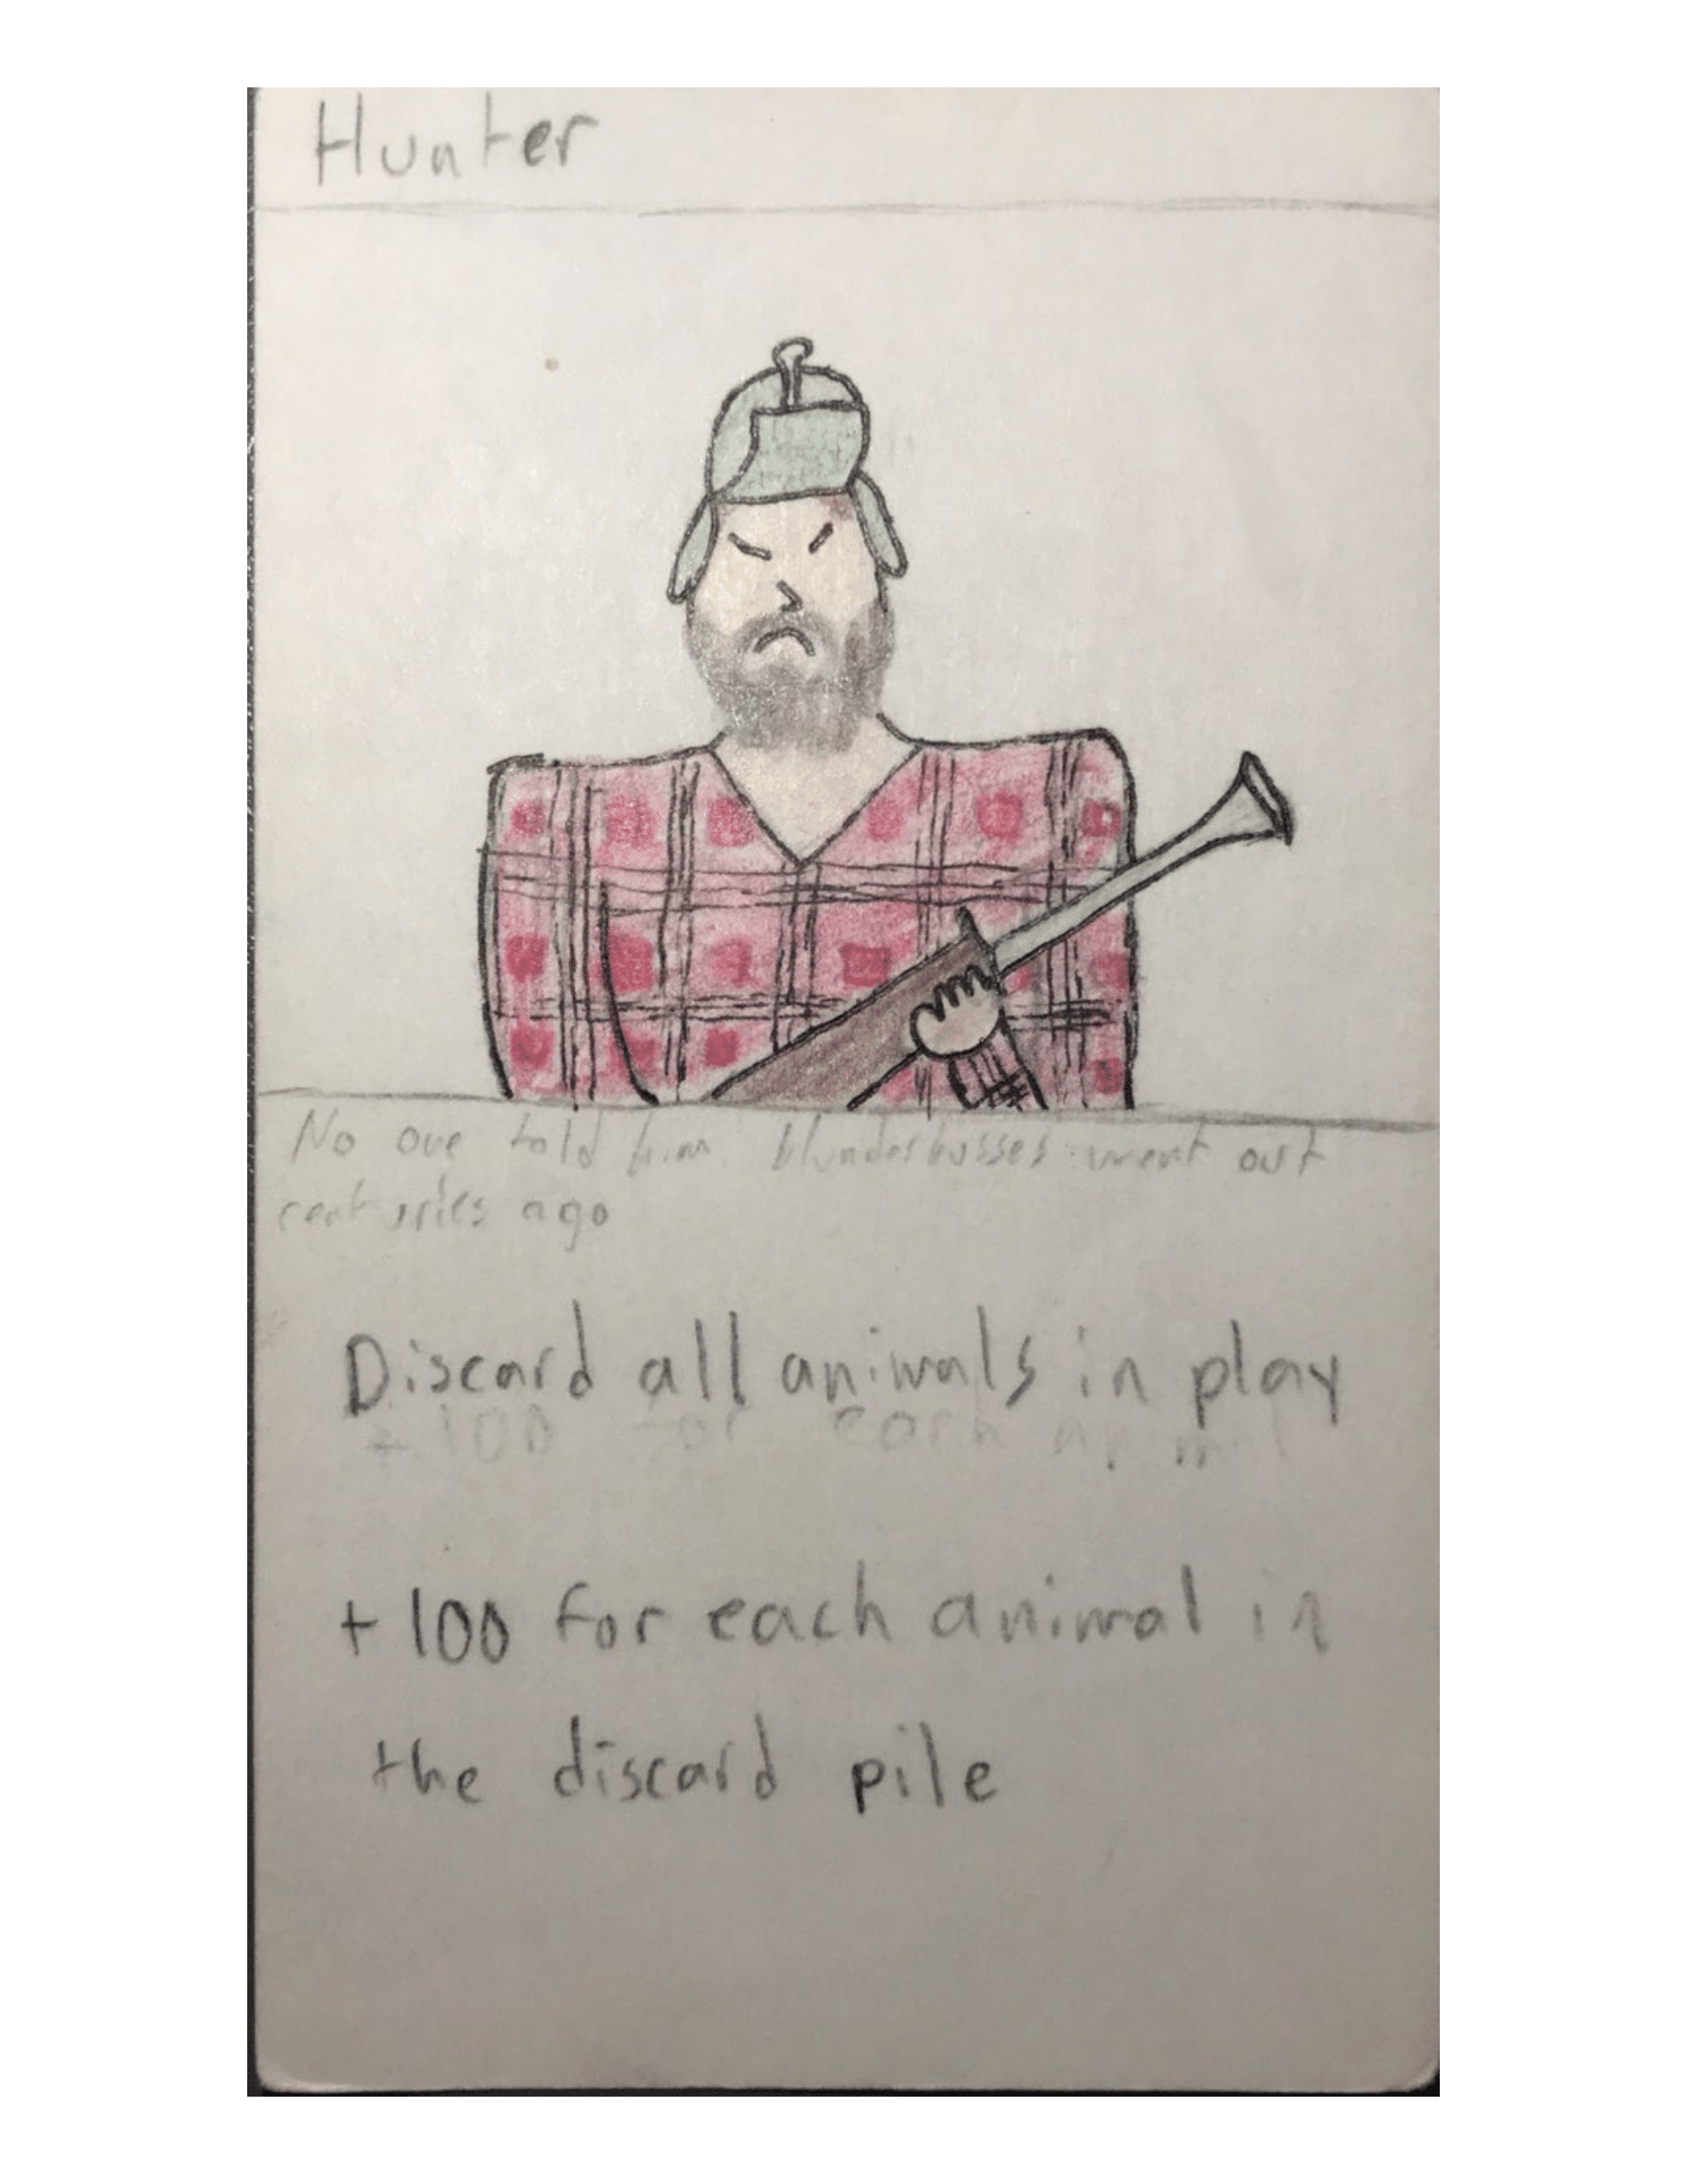 Hunter
No one told him blunderbusses went out
centuries ago
Discard all animals in play
+100 for each
+100 for each animal in
the discard pile